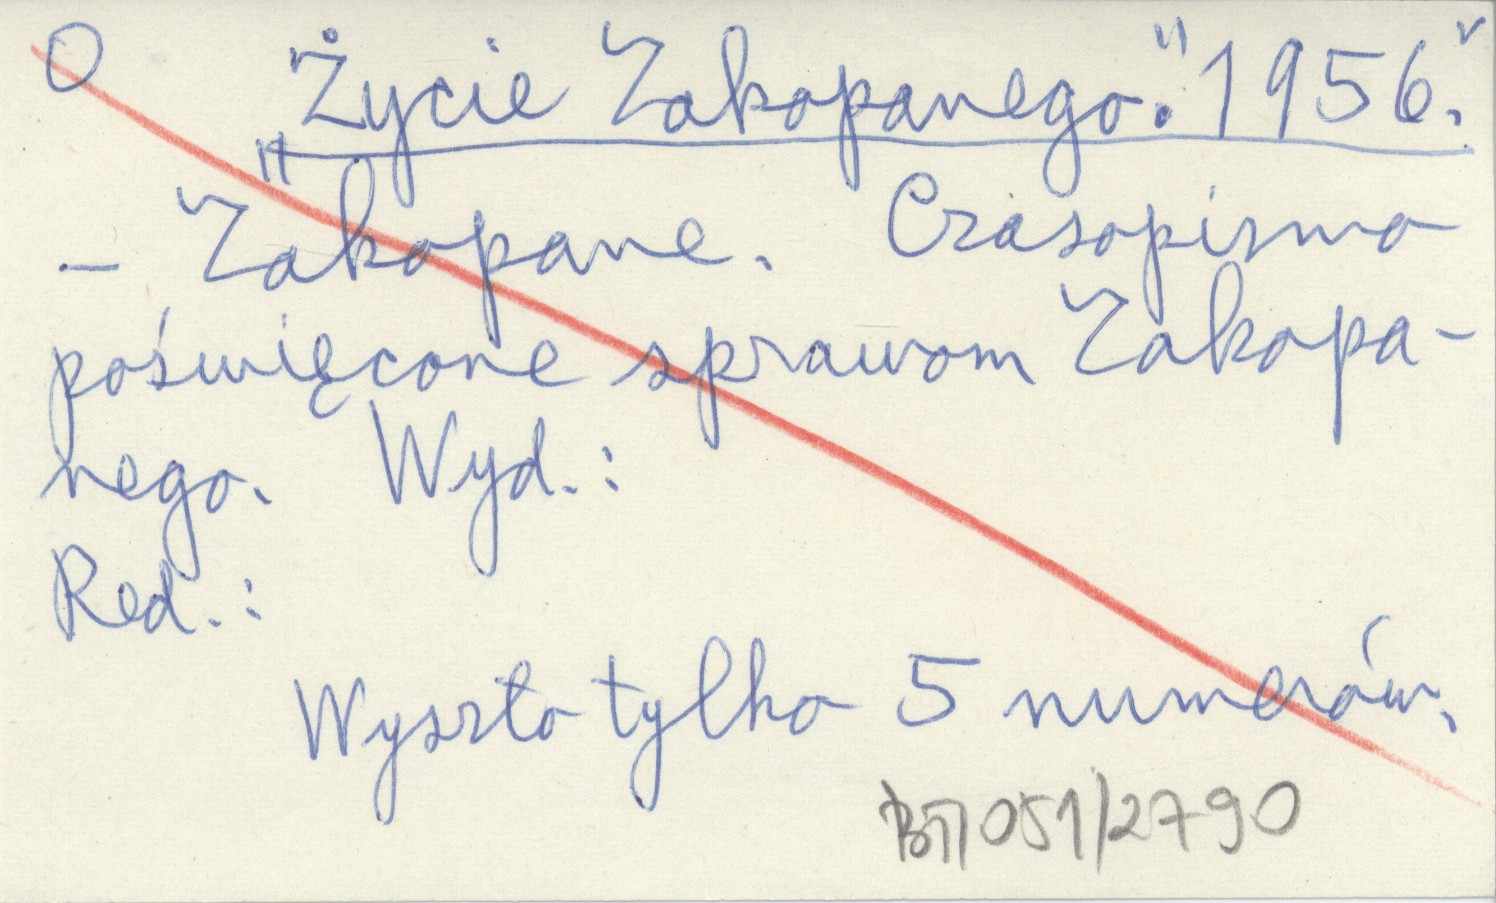 O "Życie Zakopanego." 1956."
"
- Zakopane. Czasopismo
poświęcone sprawom Zakopa-
nego. Wyd.:
Red.:
Wyszło tylko 5 numerów.
051/2790